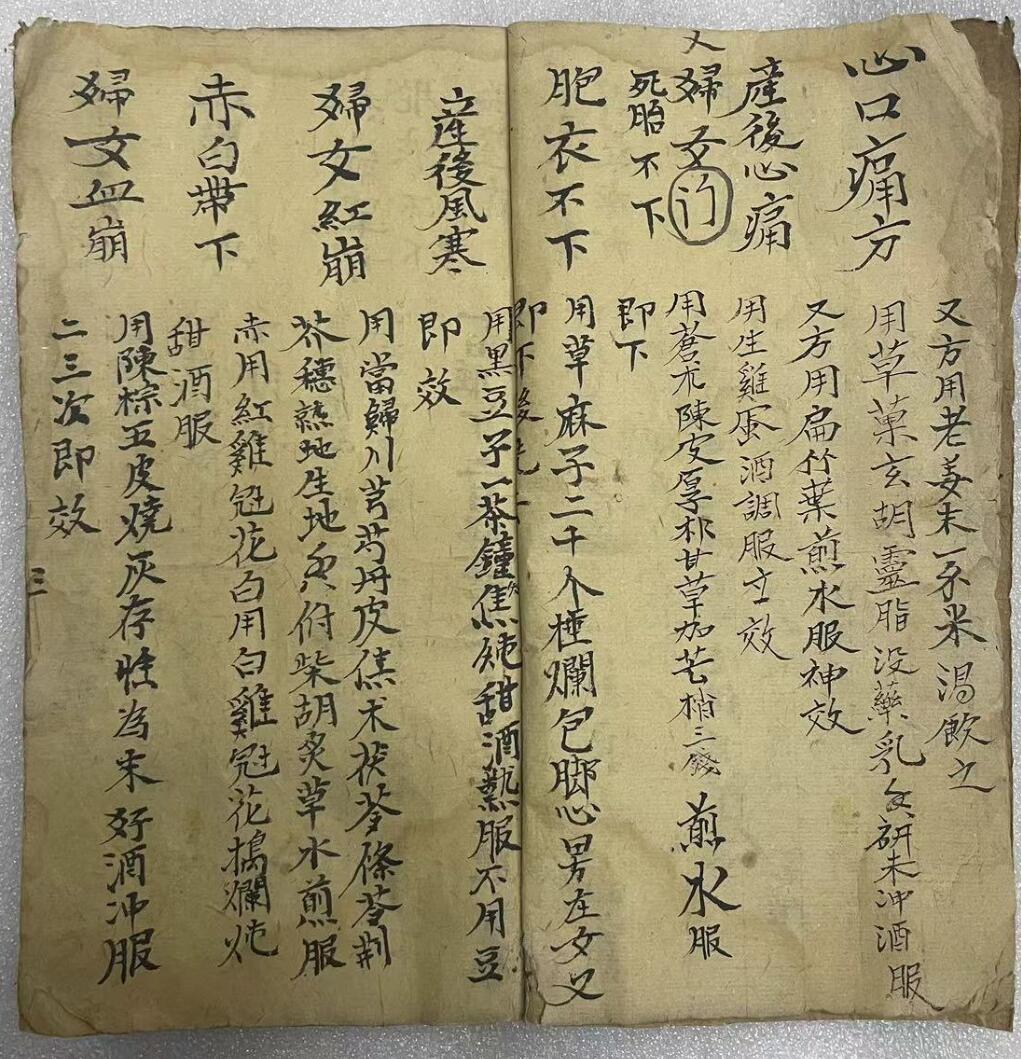 心口痛方
又方用老姜末一不米湯飲之
用草菓玄胡靈脂没藥乳香研末冲酒服
又方用扁竹葉煎水服神效
產後心痛
用生雞蛋酒調服立效
又婦女门
死胎不下
用蒼朮陳皮厚朴甘草加芒梢三錢煎水服
即下
胞衣不下
用草麻子二千个捶爛包脚心男左女又
即下後
產後風寒
用黑豆子一茶鐘焦炖甜酒熱服不用豆
即效
婦女紅崩
用當歸川芎芍丹皮焦术茯苓條苓荆
芥穗熟地生地香付柴胡炙草水煎服
赤白帶下
赤用紅雞冠花白用白雞冠花搗爛炖
甜酒服
婦女血崩
用陳棕五皮燒灰存性為末好酒冲服
二三次即效
三